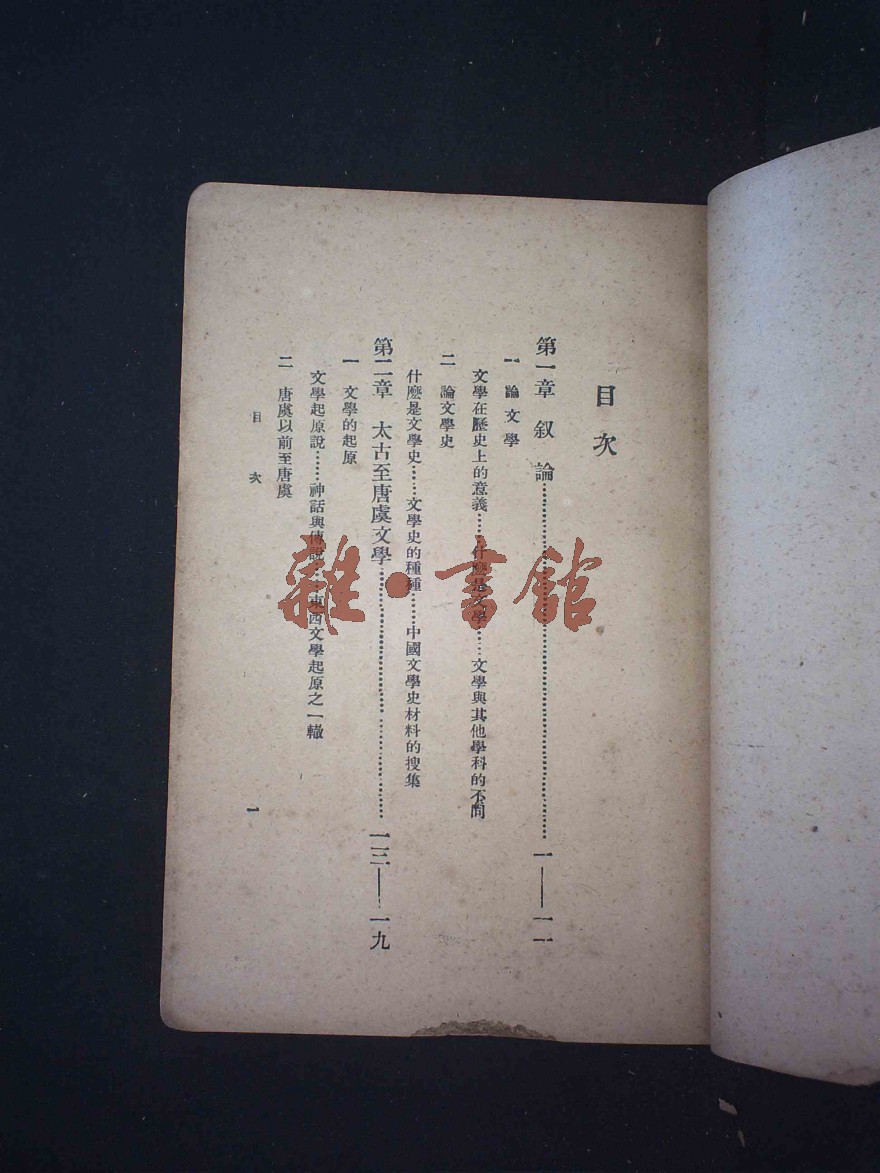 目次
第一章 叙論……一——一二
一 論文學
文學在歷史上的意義……什麼是文學……文學與其他學科的不同
二 論文學史
什麽是文學史……文學史的種種……中國文學史材料的搜集
第二章 太古至唐虞文學……一三——一九
一 文學的起原
文學起原說……神話與傳說……東西文學起原之一轍
二 唐虞以前至唐虞
目次
一
雜·書館